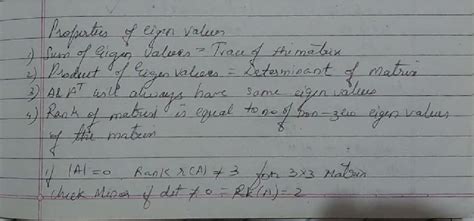 Properties of eigen values
1) Sum of Eigen values = Trace of the matrix
2) Product of Eigen values = Determinant of matrix
3) A & A^T will always have same eigen values
4) Rank of matrix is equal to no of non-zero eigen values
of the matrix
if |A| = 0 Rank (A) ≠ 3 for 3x3 Matrix
Check Minor if det ≠ 0 = (A) = 2